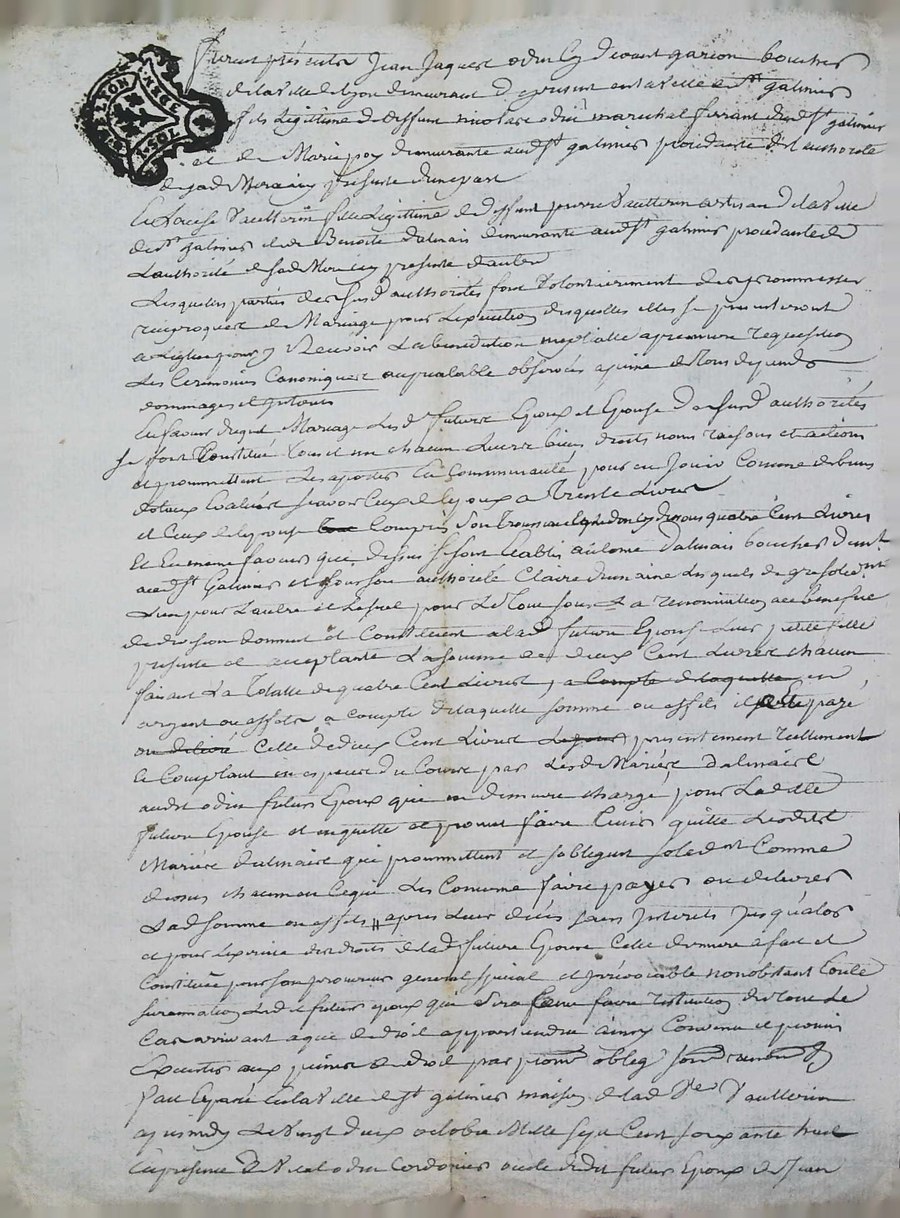 Furent présents Jean Jaques odin cy devant garçon boucher
de la Ville de Lyon demeurant a present en la Ville de St galmier
fils Legittime de deffunt nicolas odin marechal ferrant dud St galmier
et de Marie demeurante aud St galmier procedante de l'authorité
de sad Mere icy presente d'une part
Et Vaultérin fille Legittime de deffunt pierre Vaultérin artisan de la Ville
de St galmier et de Benoite dalmais demeurante aud St galmier procedante de
L'authorité de sad Mere icy presente d'autre
Lesquelles parties de leursd authorités font Volontairement des promesses
reciproques de Mariage pour L'execution desquelles elles se presenteront
a L'eglise pour y Recevoir La benediction nuptialle a premiere requisition
Les Ceremonies Canoniques au prealable observées a peine de Tous depends
dommages et interets
En faveur duquel Mariage Lesd futurs Epoux et Epouse de leursd authorités
se font Constitué Tous et un chacun Leurs biens droits noms raisons et actions
et promettent Les aporter En Communauté pour en Jouir Comme de biens
dotaux Evalués scavoir Ceux de l'epoux a Trente Livres
et Ceux de l'epouse Compris son Trousseau dessous quatre Cent Livres
Et En meme faveur que dessus se sont Etablis antoine dalmais boucher demt
aud St Galmier et de son authorité Claire Lesquels de gré solidt
L'un pour L'autre et Le seul pour Le Tout sous La renonciation au benefice
de division donnent et Constituent a lad future Epouse Leur petite fille
presente et acceptante La somme de deux Cent Livres chacun
faisant La Totalle de quatre Cent Livres, a Compte de laquelle en
argent ou effets a compte de laquelle somme ou effets il payé
ou delivré Celle de deux Cent Livres presentement reellement
Et Comptant en especes du Cours par Lesd Mariés dalmais
audit odin futur Epoux qui en demeure chargé pour Lad
future Epouse et en quitte et promet faire Tenir quitte Lesdits
Mariés dalmais qui promettent et s'obligent solidt Comme
dessus chacun en ce qui Les Concerne faire payer ou delivrer
Lad somme ou effets apres Leur décès sans Interets Jusqu'alors
et pour L'exercice des droits de lad future Epouse Celle demeure a fait et
Constitué pour son procureur general special et Irrévocable nonobstant Toute
surannation Led futur epoux qui sera faire restitution du Tout Le
Cas arrivant a qui de droit appartiendra ainsy Convenu et promis
Executer aux peines de droit par promt oblig
Fait et passé En la Ville de St galmier maison de lad Vaultérin
apres midy Le Vingt deux octobre Mille sept Cent soixante huit
En presence de odin Cordonier oncle dudit futur Epoux de Jean